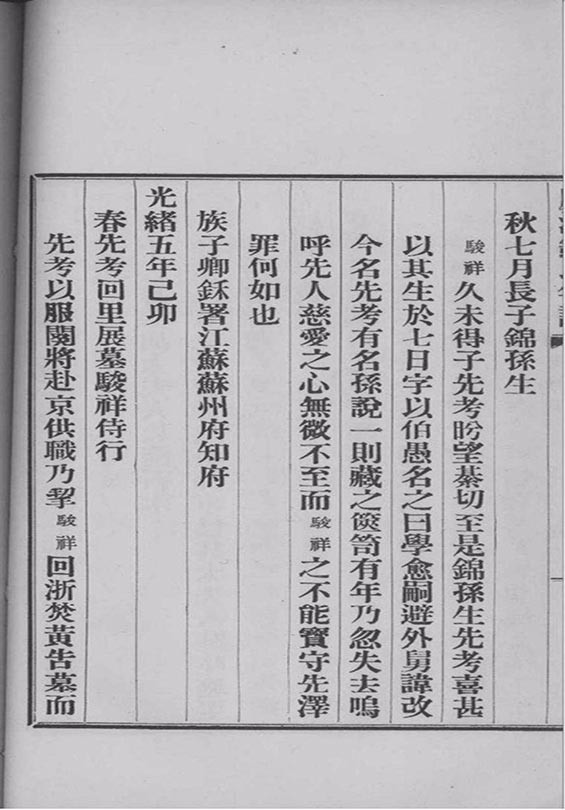 秋七月長子錦孫生
駿祥久未得子先考盼望綦切至是錦孫生先考喜甚
以其生於七日字以伯愚名之曰學愈嗣避外舅諱改
今名先考有名孫說一則藏之篋笥有年乃忽失去嗚
呼先人慈愛之心無微不至而駿祥之不能寶守先澤
罪何如也
族子卿鉌署江蘇蘇州府知府
光緒五年己卯
春先考回里展墓駿祥侍行
先考以服闋將赴京供職乃挈駿祥回浙焚黃告墓而